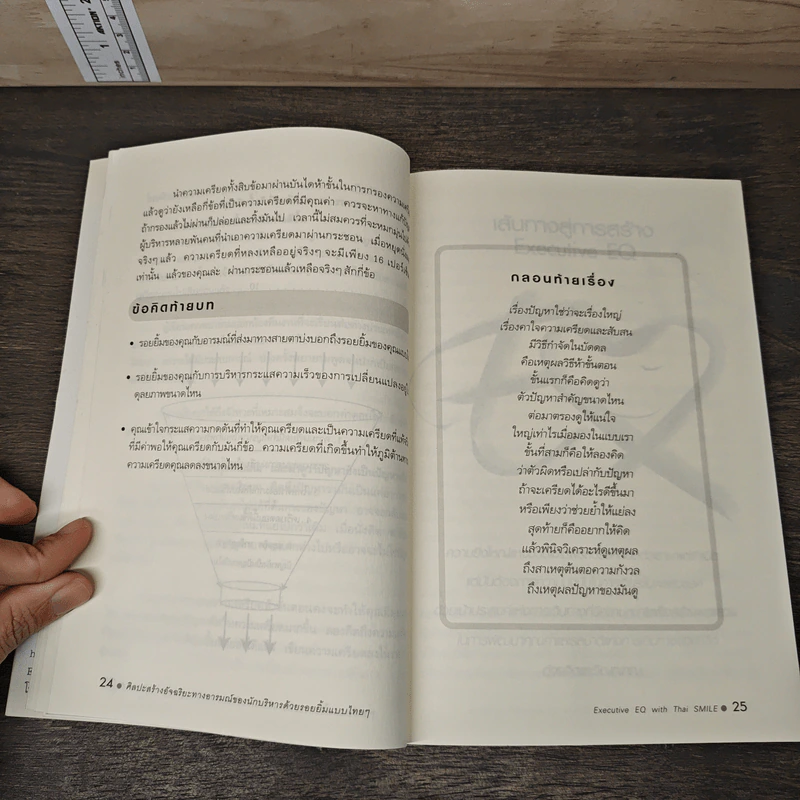 นำความเครียดทั้งสิบข้อมาผ่านบันไดห้าขั้นในการกรองความ
แล้วดูว่ายังเหลือกี่ข้อที่เป็นความเครียดที่มีคุณค่า ควรจะหาทาง
ถ้ากรองแล้วไม่ผ่านก็ปล่อยและทิ้งมันไป เวลานี้ไม่สมควรที่จะหมกมุ่น
ผู้บริหารหลายพันคนที่นำเอาความเครียดมาผ่านกระชอน เมื่อหยุด
จริงๆ แล้ว ความเครียดที่หลงเหลืออยู่จริงๆ จะมีเพียง 16
เท่านั้น แล้วของคุณล่ะ ผ่านกระชอนแล้วเหลือจริงๆ สักกี่ข้อ
ข้อคิดท้ายบท
• รอยยิ้มของคุณกับอารมณ์ที่ส่งมาทางสายตาบ่งบอกถึงรอยยิ้มของคุณ
• รอยยิ้มของคุณกับการบริหารกระแสความเร็วของการเปลี่ยนแปลง
ดุลยภาพขนาดไหน
• คุณเข้าใจกระแสความกดดันที่ทำให้คุณเครียดและเป็นความเครียดที่
ที่มีค่าพอให้คุณเครียดกับมันกี่ข้อ ความเครียดที่เกิดขึ้นทำให้ภูมิต้าน
ความเครียดคุณลดลงขนาดไหน
24 ● ศิลปะสร้างอัจฉริยะทางอารมณ์ของนักบริหารด้วยรอยยิ้มแบบไทยๆ
กลอนท้ายเรื่อง
เรื่องปัญหาใช่ว่าจะเรื่องใหญ่
เรื่องคาใจความเครียดและสับสน
มีวิธีกำจัดในบัดดล
คือเหตุผลวิธีห้าขั้นตอน
ขั้นแรกก็คือคิดดูว่า
ตัวปัญหาสำคัญขนาดไหน
ต่อมาตรองดูให้แน่ใจ
ใหญ่เท่าไรเมื่อมองในแบบเรา
ขั้นที่สามก็คือให้ลองคิด
ว่าตัวผิดหรือเปล่ากับปัญหา
ถ้าจะเครียดได้อะไรดีขึ้นมา
หรือเพียงว่าช่วยย้ำให้แย่ลง
สุดท้ายก็คืออยากให้คิด
แล้วพินิจวิเคราะห์ดูเหตุผล
ถึงสาเหตุต้นตอความกังวล
ถึงเหตุผลปัญหาของมันดู
Executive EQ with Thai SMILE ● 25